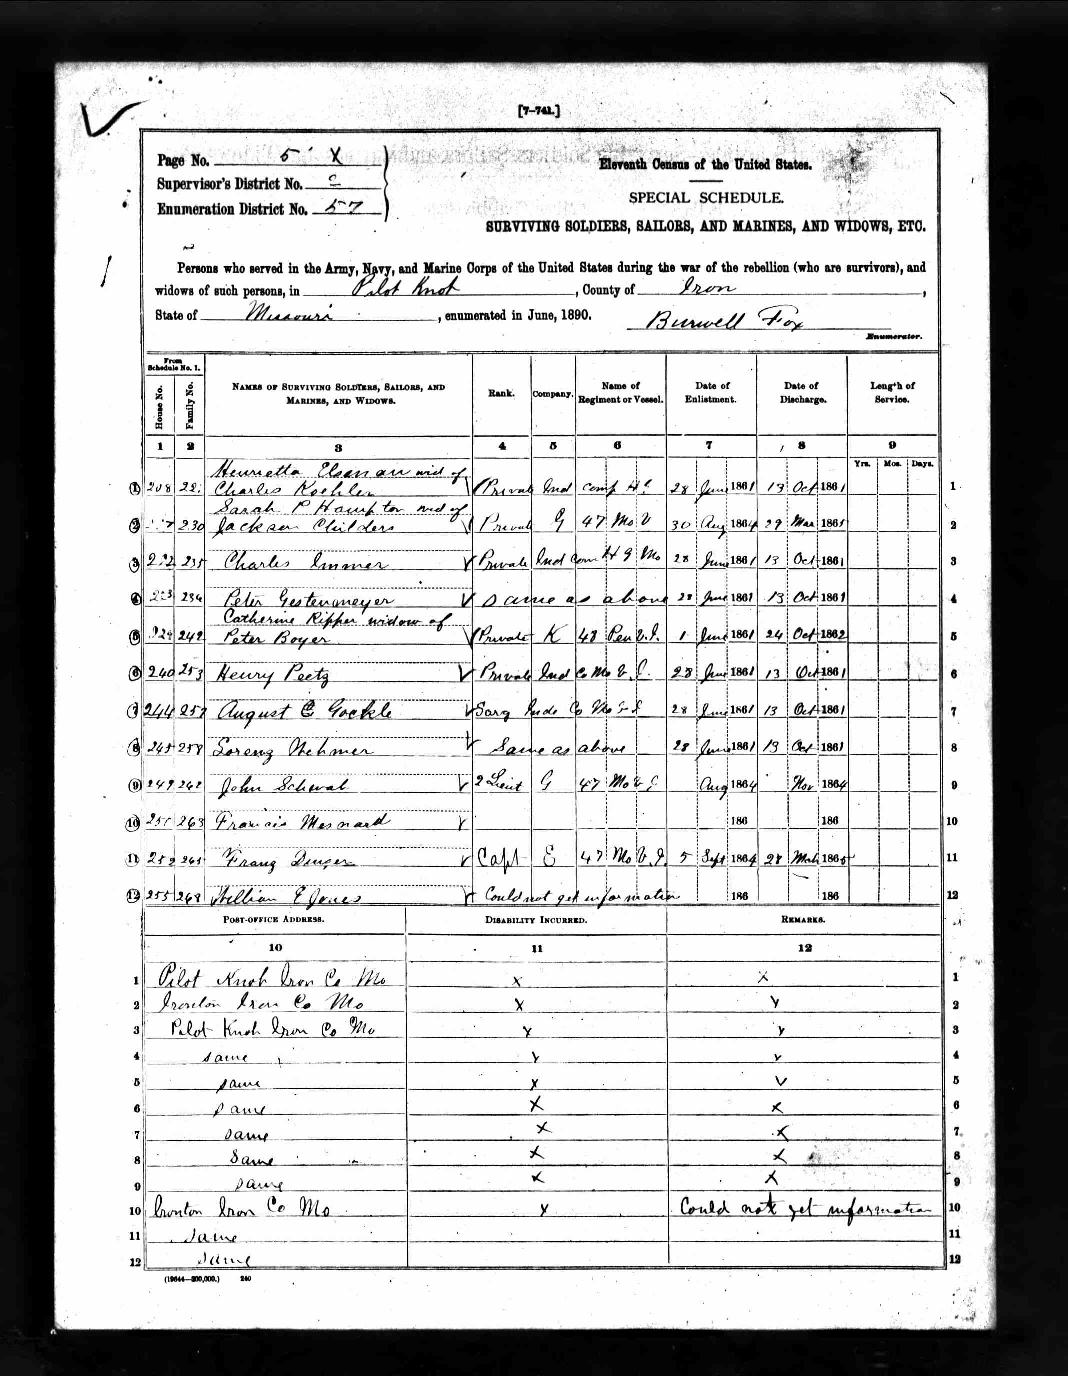 [7-741.]
Page No. 5 X
Supervisor's District No.
Enumeration District No. 57
Eleventh Census of the United States.
SPECIAL SCHEDULE.
SURVIVING SOLDIERS, SAILORS, AND MARINES, AND WIDOWS, ETC.
Persons who served in the Army, Navy, and Marine Corps of the United States during the war of the rebellion (who are survivors), and
widows of such persons, in Pilot Knob, County of Iron,
State of Missouri, enumerated in June, 1890. Burwell Fox
Enumerator.
From Schedule No. 1.
House No. Family No. NAMES OF SURVIVING SOLDIERS, SAILORS, AND MARINES, AND WIDOWS. Rank. Company. Name of Regiment or Vessel. Date of Enlistment. Date of Discharge. Length of Service.
1 2 3 4 5 6 7 8 9
Yrs. Mos. Days.
Henrietta wid of
1 208 Charles Koehler Private Ind comp 28 June 1861 13 Oct 1861 1
Sarah P Hampton wid of
2 230 Jackson Childers Private G 47 Mo V 30 Aug 1864 29 Mar 1865 2
3 232 235 Charles Immer Private Ind com H G Mo 28 June 1861 13 Oct 1861 3
4 236 Peter Gestenmeyer same as above 28 June 1861 13 Oct 1861 4
Catherine Ripper widow of
5 242 Peter Boyer Private K 48 Pen V.I. 1 June 1861 24 Oct 1862 5
6 240 253 Henry Peetz Private Ind Co Mo V I. 28 June 1861 13 Oct 1861 6
7 244 257 August E Gockle Sarg Inde Co Mo V I 28 June 1861 13 Oct 1861 7
8 245 258 Lorenz Nehmer Same as above 28 June 1861 13 Oct 1861 8
9 249 262 John Schwab 2 Lieut G 47 Mo V I Aug 1864 Nov 1864 9
10 263 Francis Mesnard 186 186 10
11 252 265 Franz Dinger Capt E 47 Mo V.I. 5 Sept 1864 28 Mch 1865 11
12 255 268 William E Jones Could not get information 186 186 12
POST-OFFICE ADDRESS. DISABILITY INCURRED. REMARKS.
10 11 12
1 Pilot Knob Iron Co Mo X X 1
2 Ironton Iron Co Mo X X 2
3 Pilot Knob Iron Co Mo X X 3
4 same X X 4
5 same X V 5
6 same X X 6
7 same X X 7
8 Same X X 8
9 same X X 9
10 Ironton Iron Co Mo X Could not get information 10
11 same 11
12 same 12
(19644—200,000.) 240